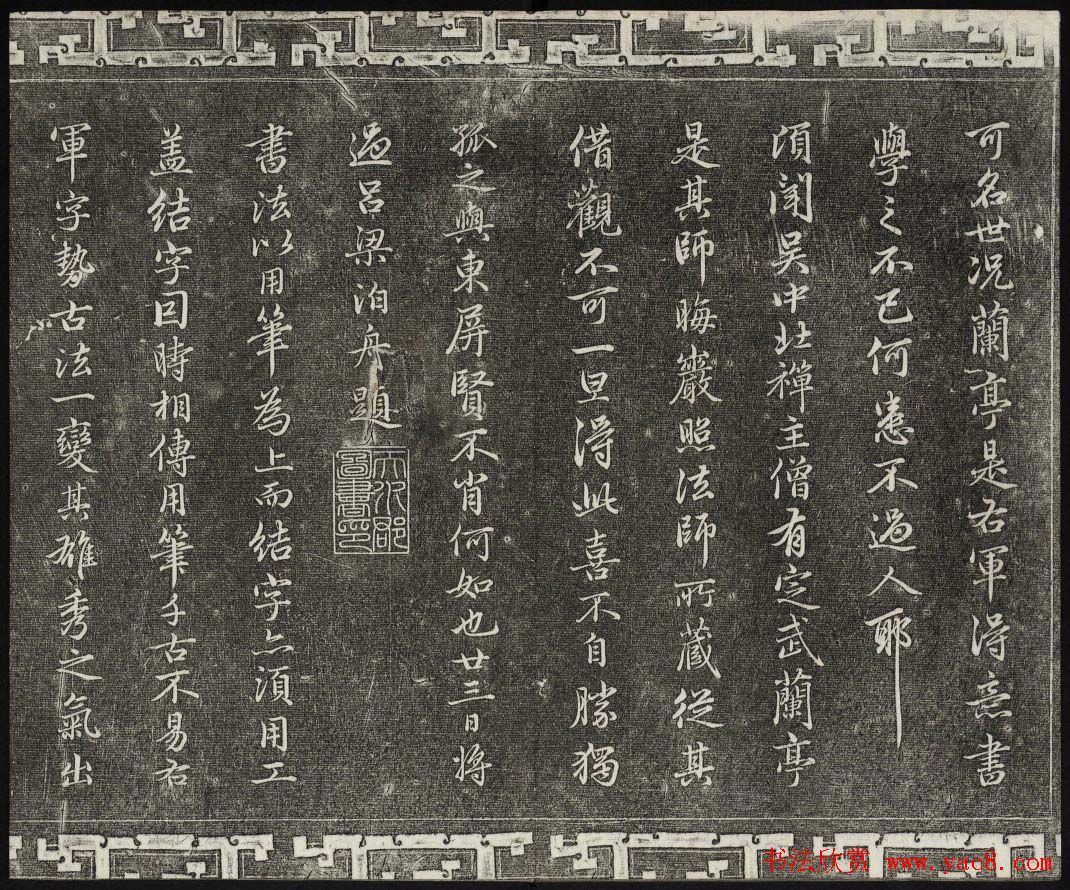 可名世况蘭亭是右軍得意書
學之不已何患不過人耶
頃聞吴中北禪主僧有定武蘭亭
是其師晦巖照法師所藏從其
借觀不可一旦得此喜不自勝獨
孤之與東屏賢不肖何如也廿三日將
過吕梁泊舟題
天水郡圖書印
書法以用筆為上而結字亦須用工
盖結字因時相傳用筆千古不易右
軍字勢古法一變其雄秀之氣出
书法欣赏 www.yac8.com